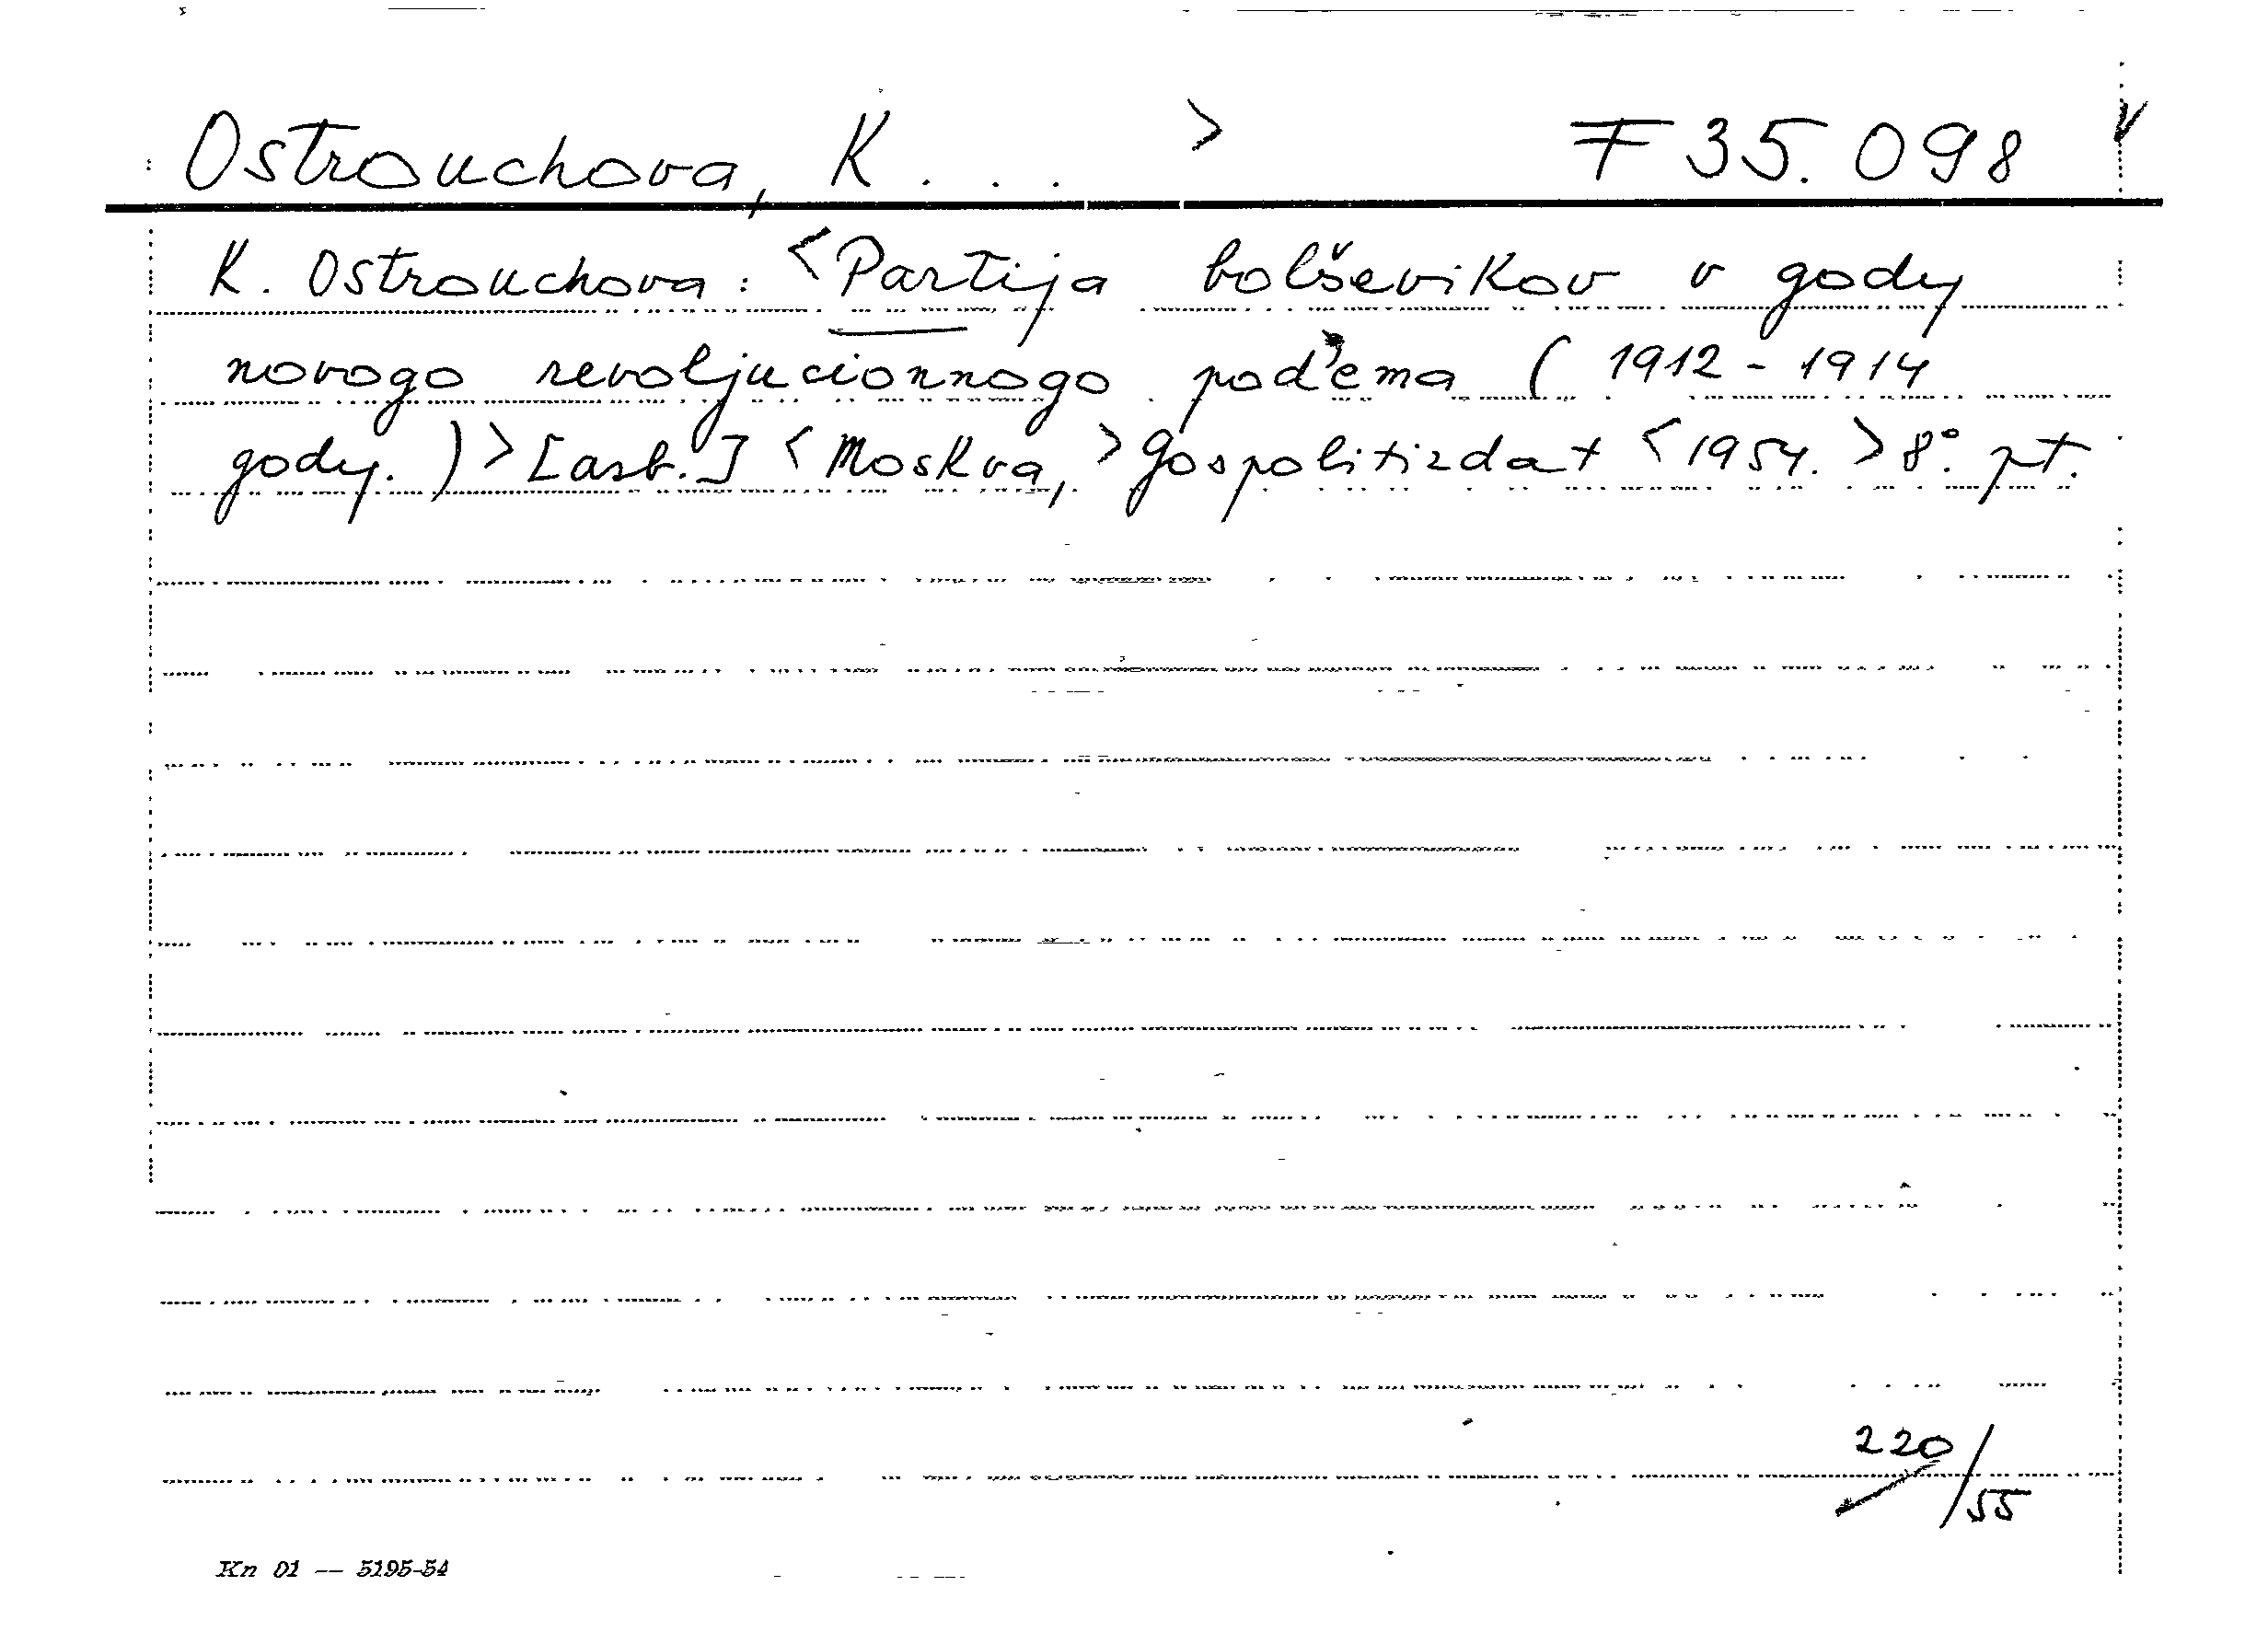 Ostrouchova, K . . . > F 35.098
K. Ostrouchova: <Partija bolševikov v gody
novogo revoljucionnogo pod'ema (1912-1914
gody.)> [azb.] <Moskva,> Gospolitizdat <1954.> 8°. pt.
220/55
Kn 01 — 5195-54